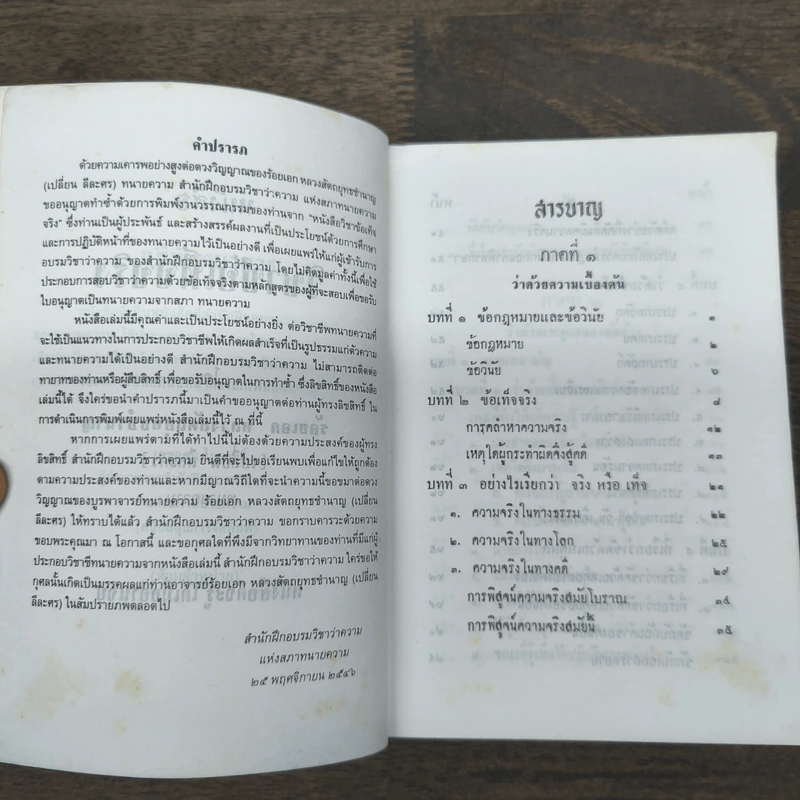 คำปรารภ
ด้วยความเคารพอย่างสูงต่อดวงวิญญาณของร้อยเอก หลวงสัตถยุทธชำนาญ
(เปลี่ยน ลีละศร) ทนายความ สำนักฝึกอบรมวิชาว่าความ แห่งสภาทนายความ
ขออนุญาตทำซ้ำด้วยการพิมพ์งานวรรณกรรมของท่านจาก "หนังสือวิชาข้อเท็จ
จริง" ซึ่งท่านเป็นผู้ประพันธ์ และสร้างสรรค์ผลงานที่เป็นประโยชน์ด้วยการศึกษา
และการปฏิบัติหน้าที่ของทนายความไว้เป็นอย่างดี เพื่อเผยแพร่ให้แก่ผู้เข้ารับการ
อบรมวิชาว่าความ ของสำนักฝึกอบรมวิชาว่าความ โดยไม่คิดมูลค่าทั้งนี้เพื่อใช้
ประกอบการสอบวิชาว่าความด้วยข้อเท็จจริงตามหลักสูตรของผู้ที่จะสอบเพื่อขอรับ
ใบอนุญาตเป็นทนายความจากสภา ทนายความ
หนังสือเล่มนี้มีคุณค่าและเป็นประโยชน์อย่างยิ่ง ต่อวิชาชีพทนายความที่
จะใช้เป็นแนวทางในการประกอบวิชาชีพให้เกิดผลสำเร็จที่เป็นรูปธรรมแก่ตัวความ
และทนายความได้เป็นอย่างดี สำนักฝึกอบรมวิชาว่าความ ไม่สามารถติดต่อ
ทายาทของท่านหรือผู้สืบสิทธิ์ เพื่อขอรับอนุญาตในการทำซ้ำ ซึ่งลิขสิทธิ์ของหนังสือ
เล่มนี้ได้ จึงใคร่ขอนำคำปรารภนี้มาเป็นคำขออนุญาตต่อท่านผู้ทรงลิขสิทธิ์ ใน
การดำเนินการพิมพ์เผยแพร่หนังสือเล่มนี้ไว้ ณ ที่นี้
หากการเผยแพร่ตามที่ได้ทำไปนี้ไม่ต้องด้วยความประสงค์ของผู้ทรง
ลิขสิทธิ์ สำนักฝึกอบรมวิชาว่าความ ยินดีที่จะไปขอเรียนพบเพื่อแก้ไขให้ถูกต้อง
ตามความประสงค์ของท่านและหากมีญาณวิถีใดที่จะนำความนี้ขอขมาต่อดวง
วิญญาณของบูรพาจารย์ทนายความ ร้อยเอก หลวงสัตถยุทธชำนาญ (เปลี่ยน
ลีละศร) ให้ทราบได้แล้ว สำนักฝึกอบรมวิชาว่าความ ขอกราบคารวะด้วยความ
ขอบพระคุณมา ณ โอกาสนี้ และขอกุศลใดที่พึงมีจากวิทยาทานของท่านที่มีแก่ผู้
ประกอบวิชาชีพทนายความจากหนังสือเล่มนี้ สำนักฝึกอบรมวิชาว่าความ ใคร่ขอให้
กุศลนั้นเกิดเป็นมรรคผลแก่ท่านอาจารย์ร้อยเอก หลวงสัตถยุทธชำนาญ (เปลี่ยน
ลีละศร) ในสัมปรายภพตลอดไป
สำนักฝึกอบรมวิชาว่าความ
แห่งสภาทนายความ
๒๕ พฤศจิกายน ๒๕๔๖
สารบาญ
ภาคที่ ๑
ว่าด้วยความเบื้องต้น
บทที่ ๑ ข้อกฎหมายและข้อวินัย ๑
ข้อกฎหมาย ๒
ข้อวินัย ๖
บทที่ ๒ ข้อเท็จจริง ๘
การคลำหาความจริง ๑๒
เหตุใดผู้กระทำผิดจึงสู้คดี ๑๓
บทที่ ๓ อย่างไรเรียกว่า จริง หรือ เท็จ ๒๑
๑. ความจริงในทางธรรม ๒๒
๒. ความจริงในทางโลก ๒๕
๓. ความจริงในทางคดี ๒๙
การพิสูจน์ความจริงสมัยโบราณ ๓๔
การพิสูจน์ความจริงสมัยนี้ ๓๕